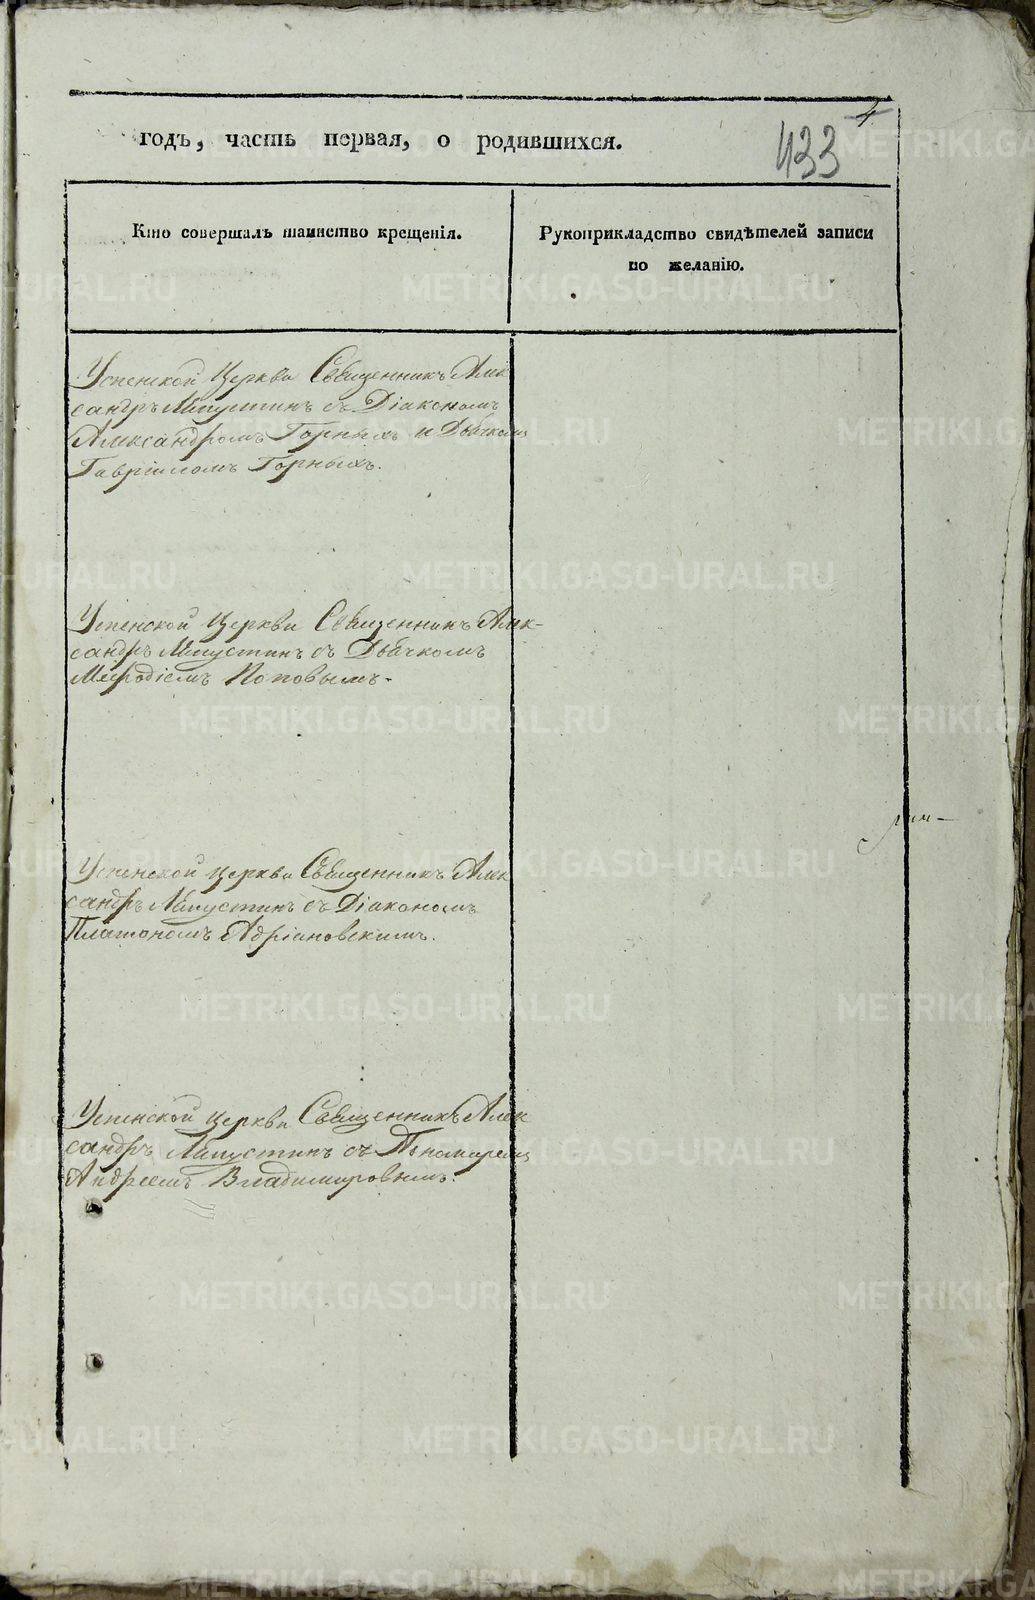 4
433
годъ, часть первая, о родившихся.
Кто совершалъ таинство крещенія.
Рукоприкладство свидѣтелей записи
по желанію.
Успенской Церкви Священникъ Алек
сандръ Лапустинъ съ Діакономъ
Александромъ Горныхъ и Дьячкомъ
Гавріиломъ Горныхъ.
Успенской Церкви Священникъ Алек-
сандръ Лапустинъ съ Дьячкомъ
Мефодіемъ Поповымъ.
Успенской Церкви Священникъ Алек
сандръ Лапустинъ съ Діакономъ
Платономъ Адріановскимъ.
Успенской Церкви Священникъ Алек
сандръ Лапустинъ съ Пономаремъ
Андреемъ Владимировымъ.
METRIKI.GASO-URAL.RU